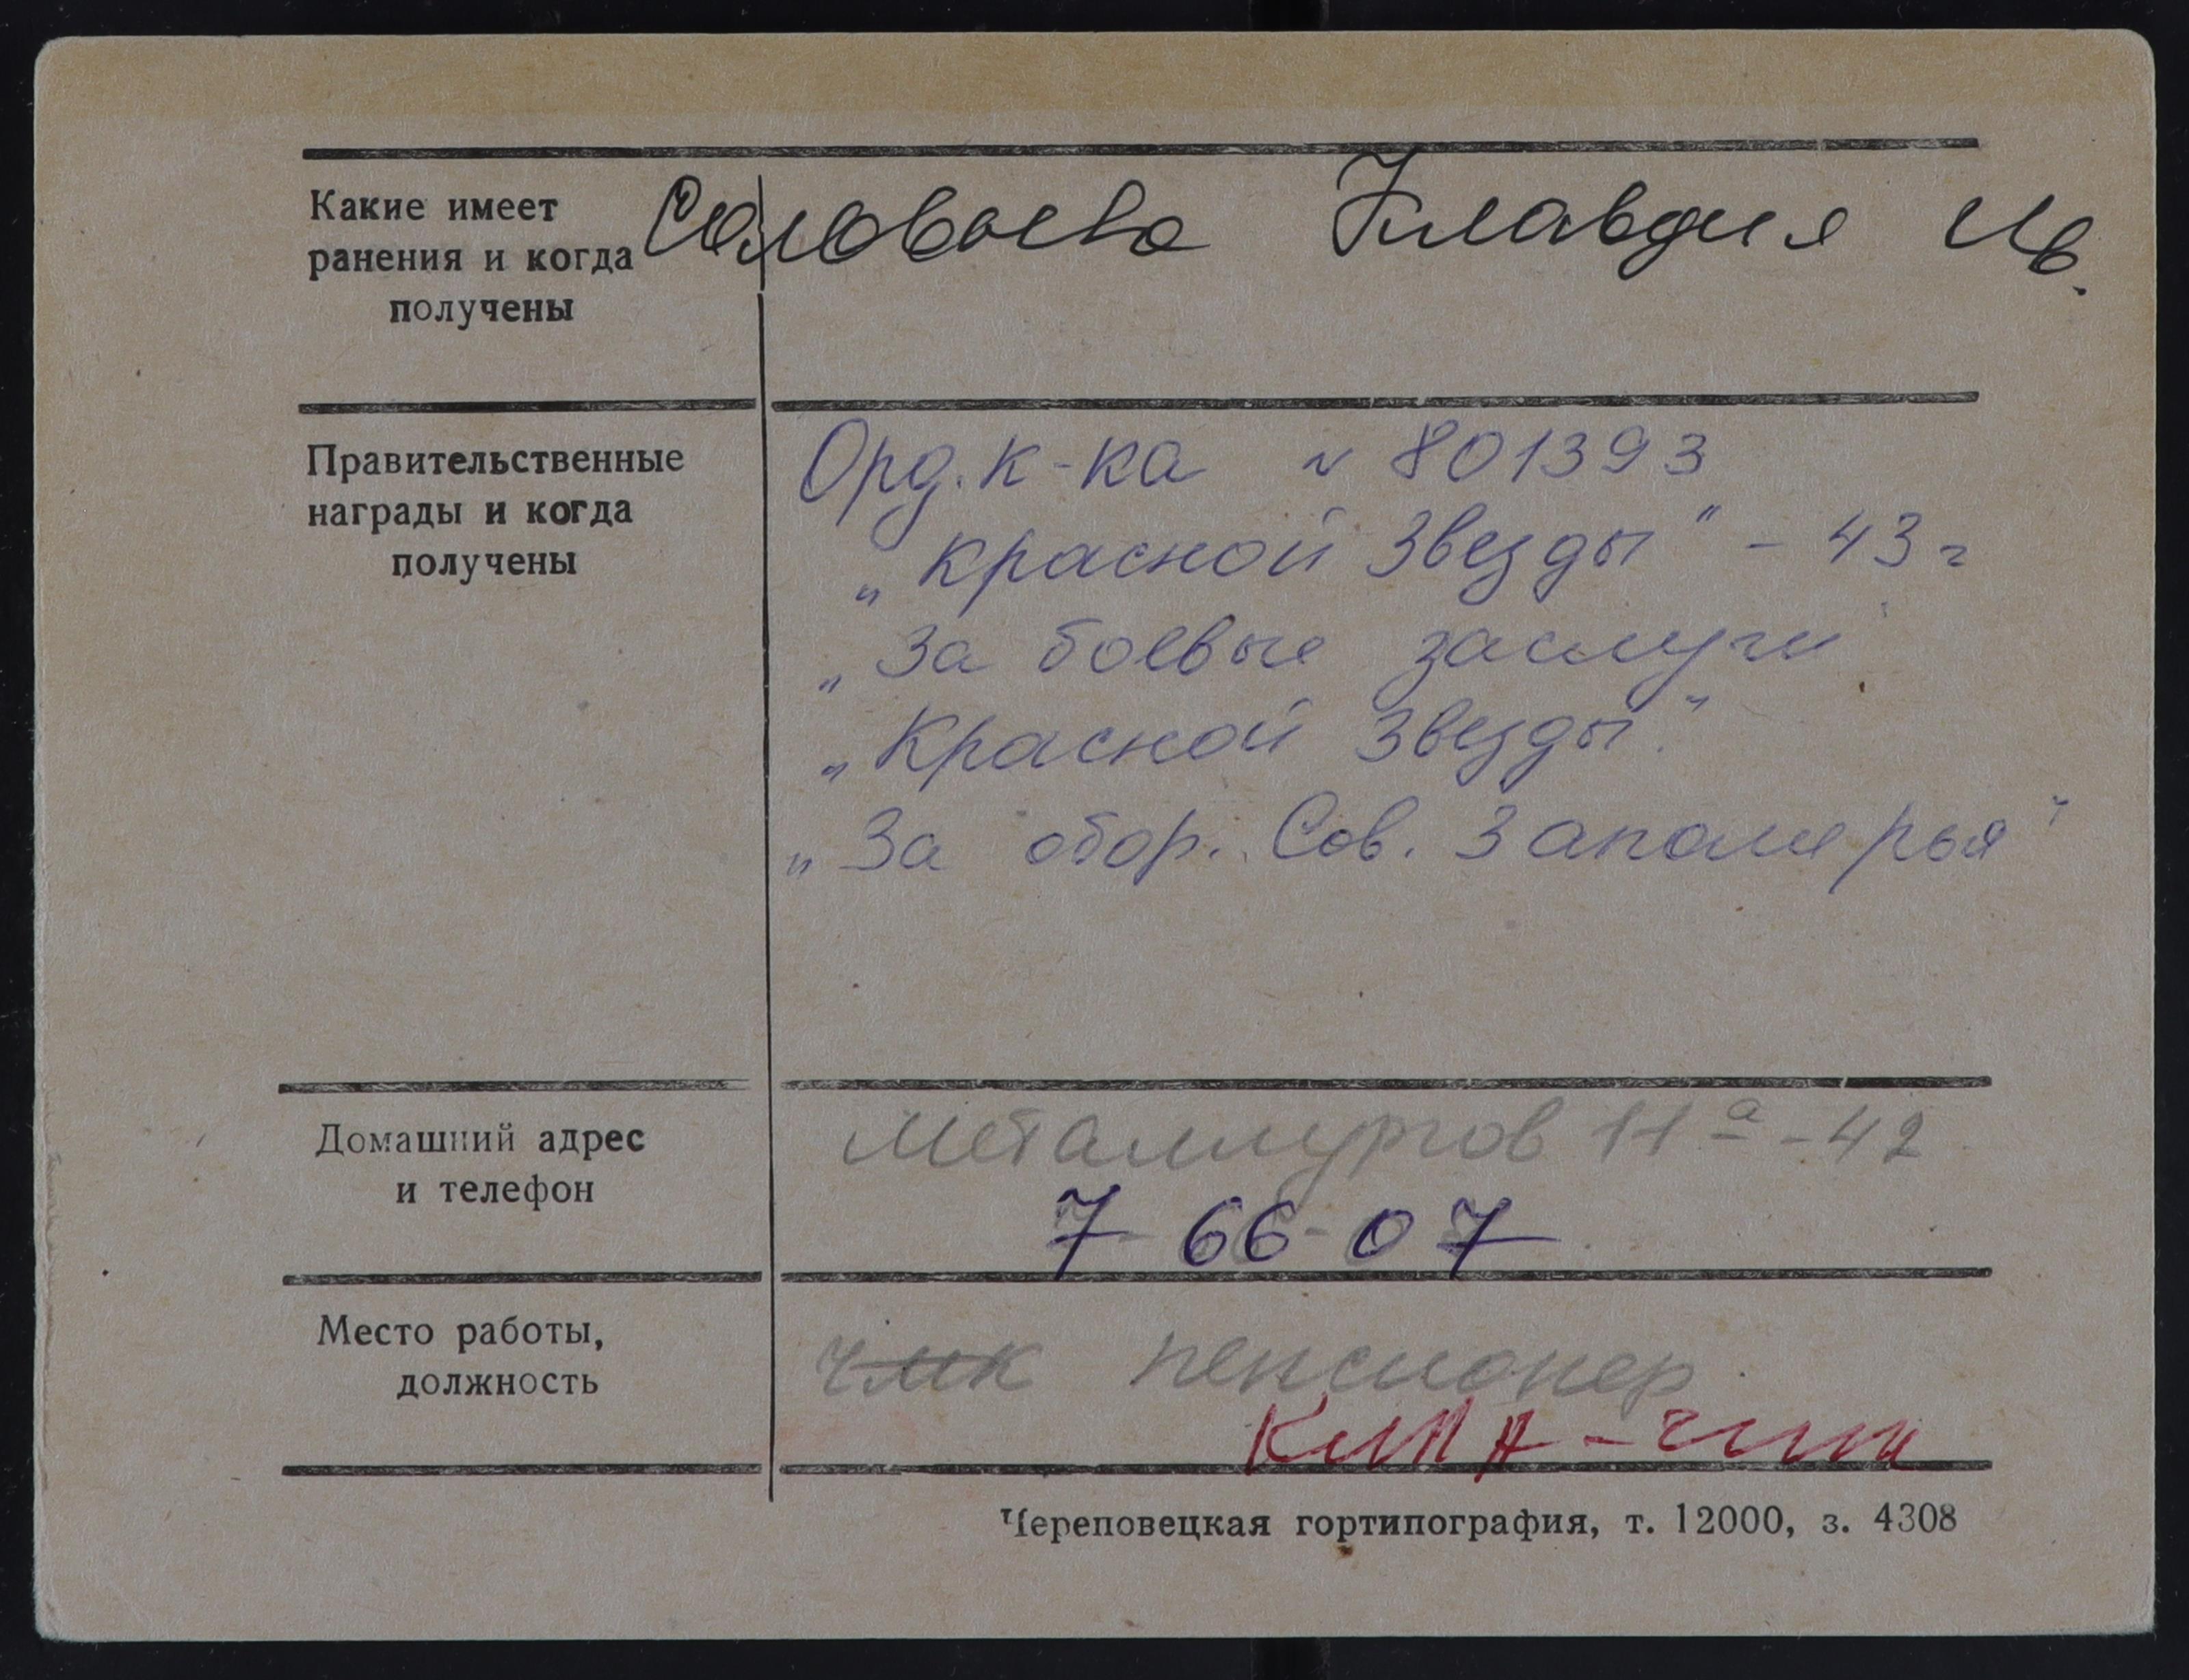 Какие имеет
ранения и когда
получены
Соловьева Клавдия Ив.
Правительственные
награды и когда
получены
Орд. к-ка № 801393
„Красной Звезды" - 43 г
„За боевые заслуги"
„Красной Звезды"
„За обор. Сов. Заполярья"
Домашний адрес
и телефон
Металлургов 11а - 42
7 66-07
Место работы,
должность
чмк пенсионер
Череповецкая гортипография, т. 12000, з. 4308